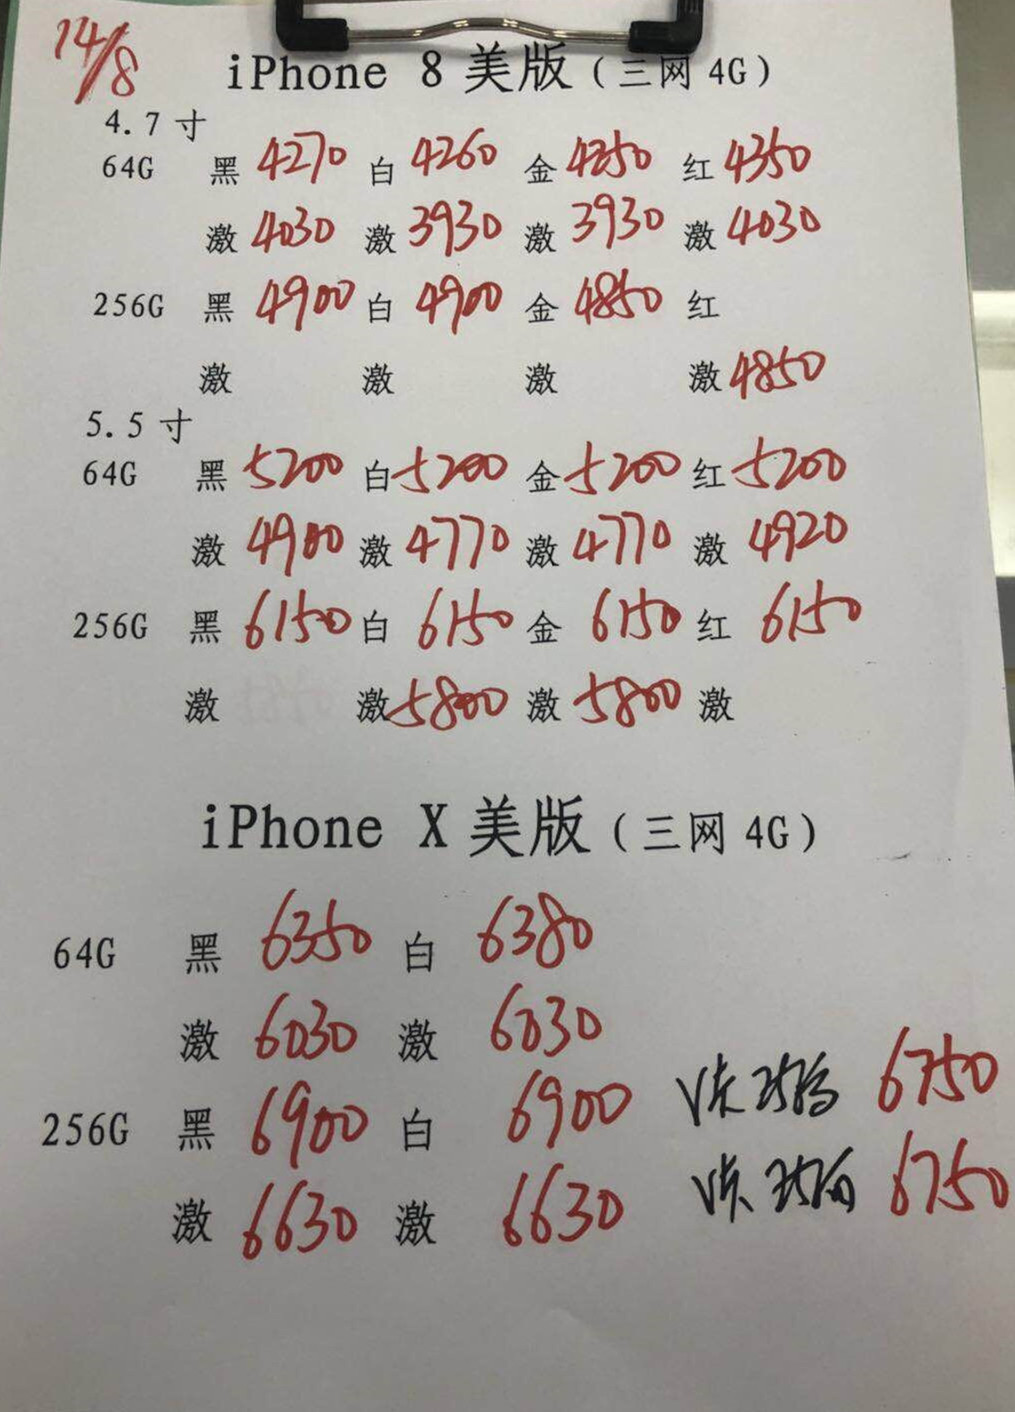 14/8
iPhone 8 美版（三网 4G）
4.7 寸
64G 黑 4270 白 4260 金 4250 红 4350
激 4030 激 3930 激 3930 激 4030
256G 黑 4900 白 4900 金 4850 红
激 激 激 激 4850
5.5 寸
64G 黑 5200 白 5200 金 5200 红 5200
激 4900 激 4770 激 4770 激 4920
256G 黑 6150 白 6150 金 6150 红 6150
激 激 5800 激 5800 激
iPhone X 美版（三网 4G）
64G 黑 6350 白 6380
激 6030 激 6030
256G 黑 6900 白 6900 6750
激 6630 激 6630 6750